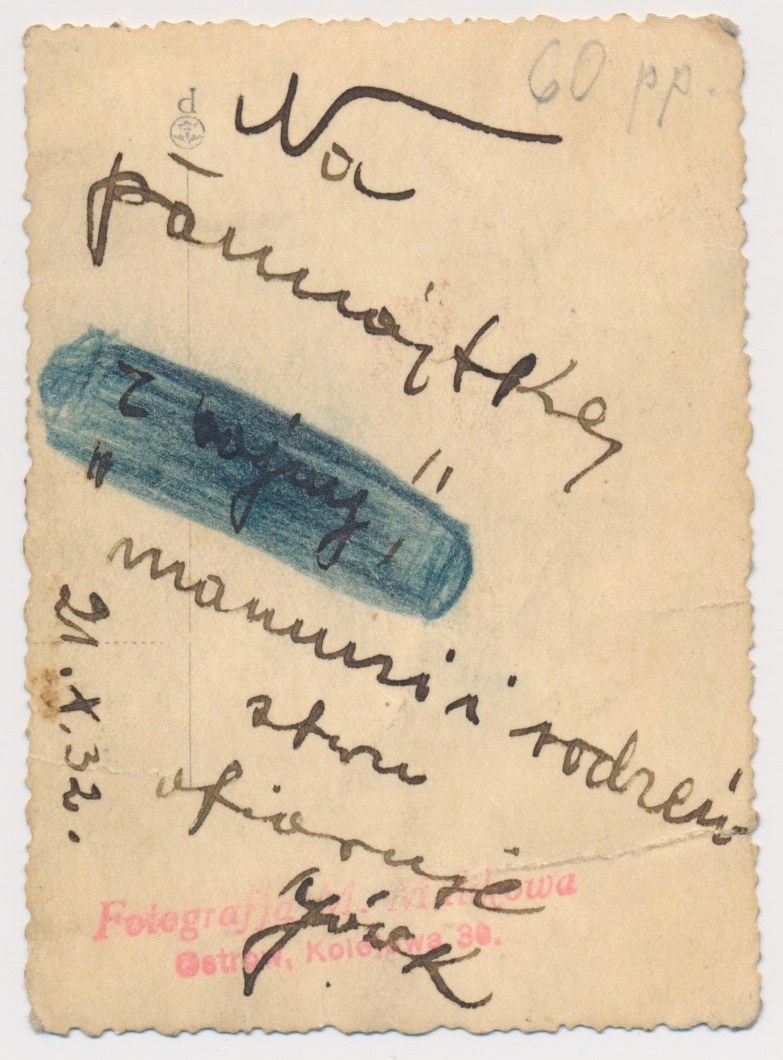 60 pp.
Na
pamiątkę
"z wojny"
mamusi i rodzeń
stwu
ofiaruje
Józek
21.X.32.
Fotografja M.
Ostrów, Kolejowa 30.